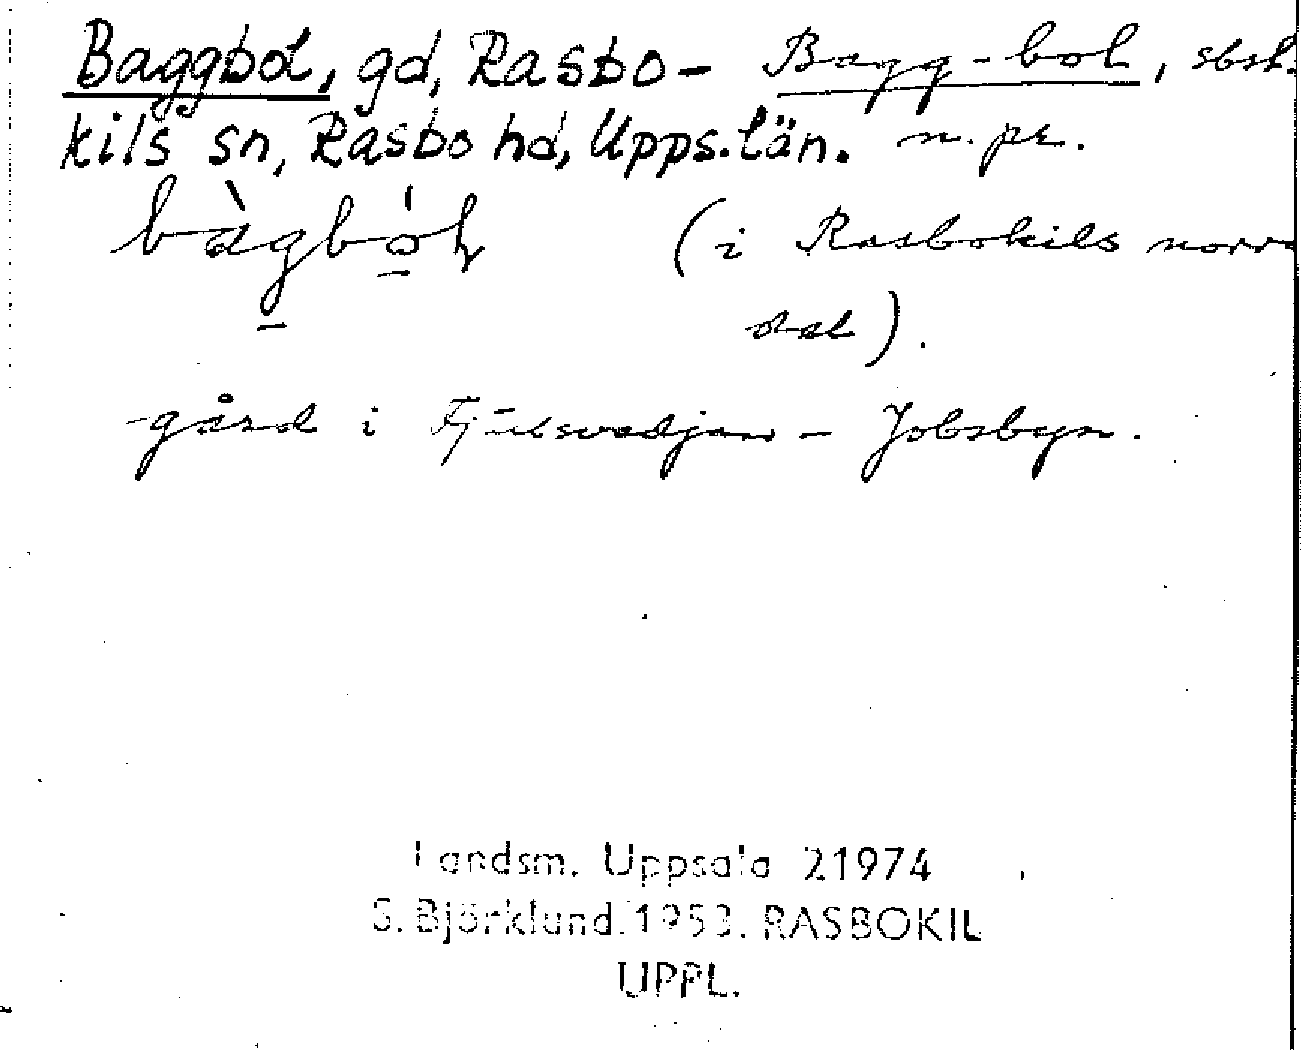 Baggbol, gd, Rasbo- Bagg-bol, sbst.
kils sn, Rasbo hd, Upps.län. n. pr.
(i Rasbokils norra
del).
gård i Jobsbyn.
Landsm. Uppsala 21974
S. Björklund. 1953. RASBOKIL
UPPL.